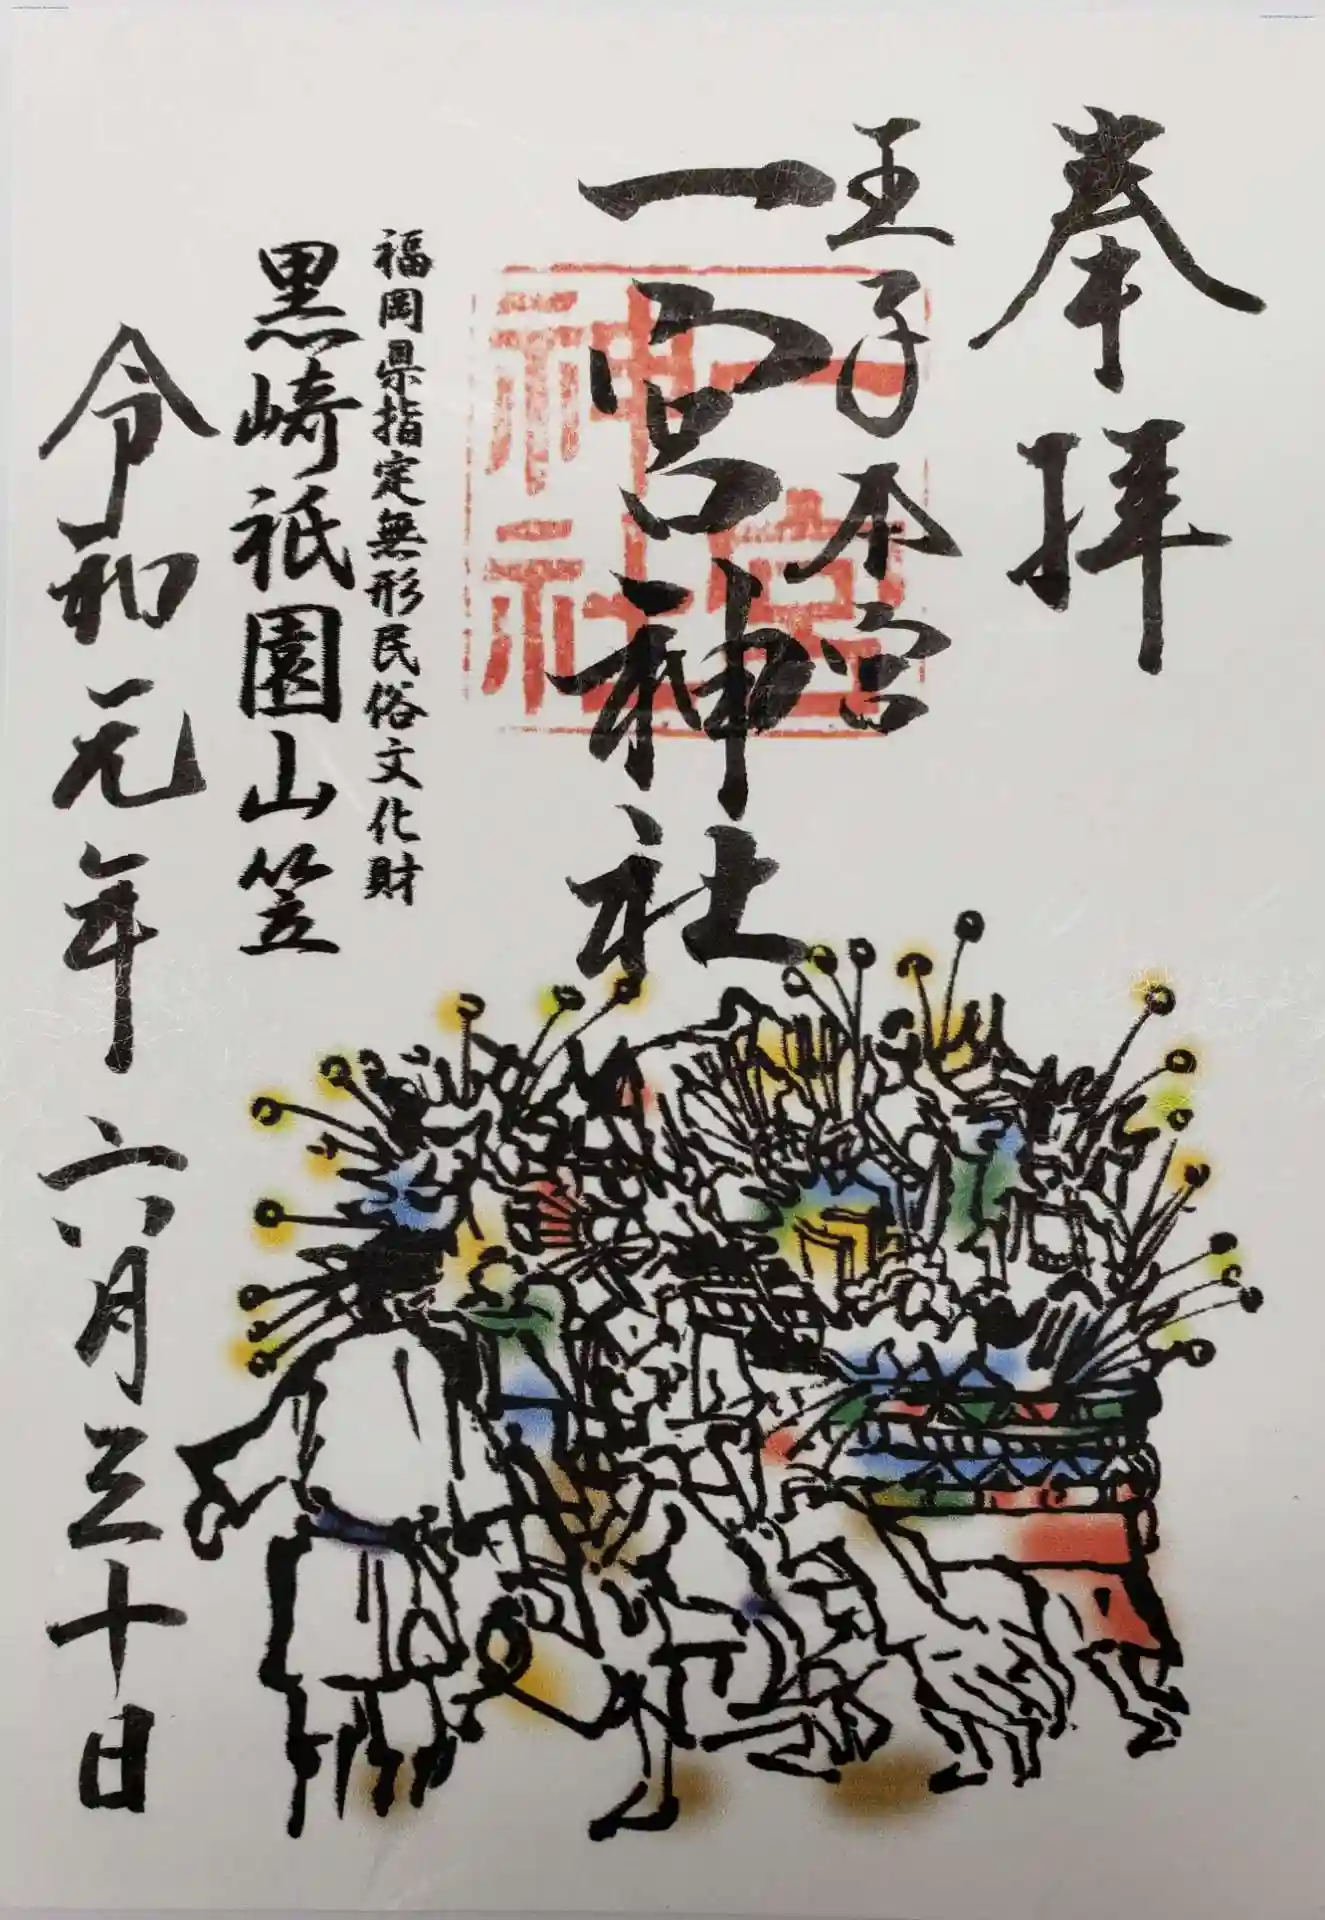 奉拝
王子本宮
一宮神社
一宮
神社
福岡県指定無形民俗文化財
黒崎祇園山笠
令和元年六月三十日